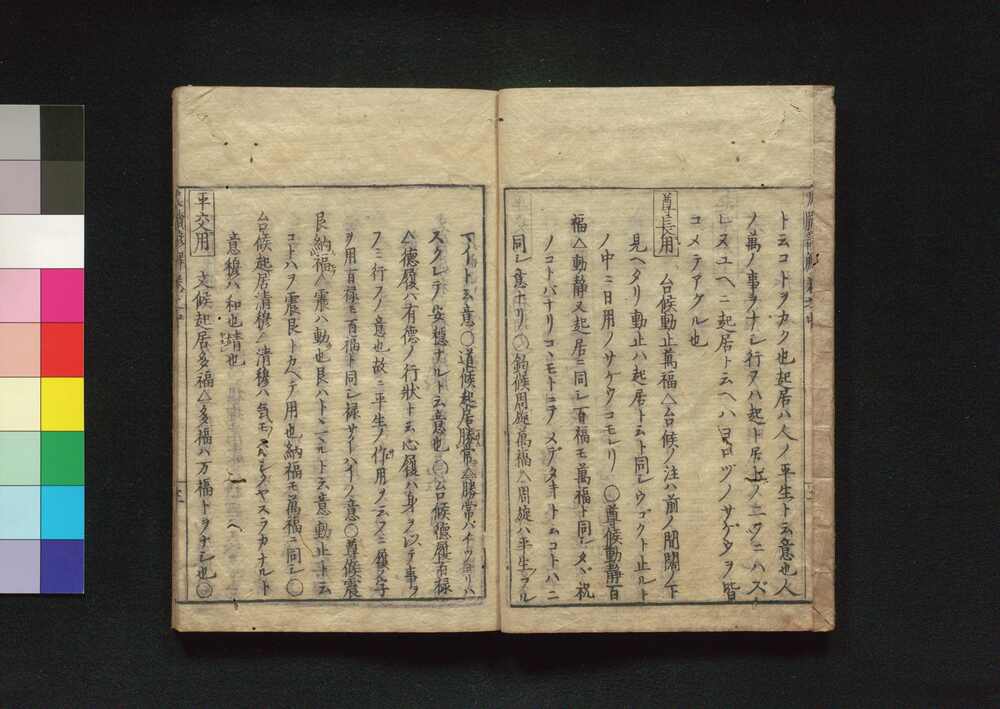 ト云コトヲカク也起居ハ人ノ平生ト云意也人
ノ萬ノ事ヲナシ行ヲハ起ト居トノ二ツニハズ
レヌユヘニ起居ト云ヘハヨロヅノサタヲ皆
コメテアクル也
尊長用 台候動止萬福△台候ノ注ハ前ノ間闊ノ下
見ヘタリ動止ハ起居ト云ト同シウゴクト止ルト
ノ中ニ日用ノサタコモレリ○尊候動靜百
福△動靜又起居ニ同シ百福モ萬福ト同シタヾ祝
ノコトバナリコヽモトニヲメデタキト云コトハニ
同シ意ナリ○鈞候周旋萬福△周旋ハ平生ヲル
下イト云意○道候起居勝常△勝常ハイツヨリハ
スクレテ安穩ナルト云意也○台候德履百禄
△德履ハ有德ノ行狀ト云心履ハ身ヲ以テ事ヲ
フミ行フノ意也故ニ平生ノ作用ヲ云フニ履之字
ヲ用百禄モ百福ト同シ禄サイハイノ意○尊候震
艮納福△震ハ動也艮ハトヽマルト云意動止ト云
コトハヲ震艮トカヘテ用也納福モ萬福ニ同シ○
台候起居清穆△清穆ハ気モスヾシクヤスラカナルト
意穆ハ和也靖也
平交用 文候起居多福△多福ハ万福トヲナシ也○